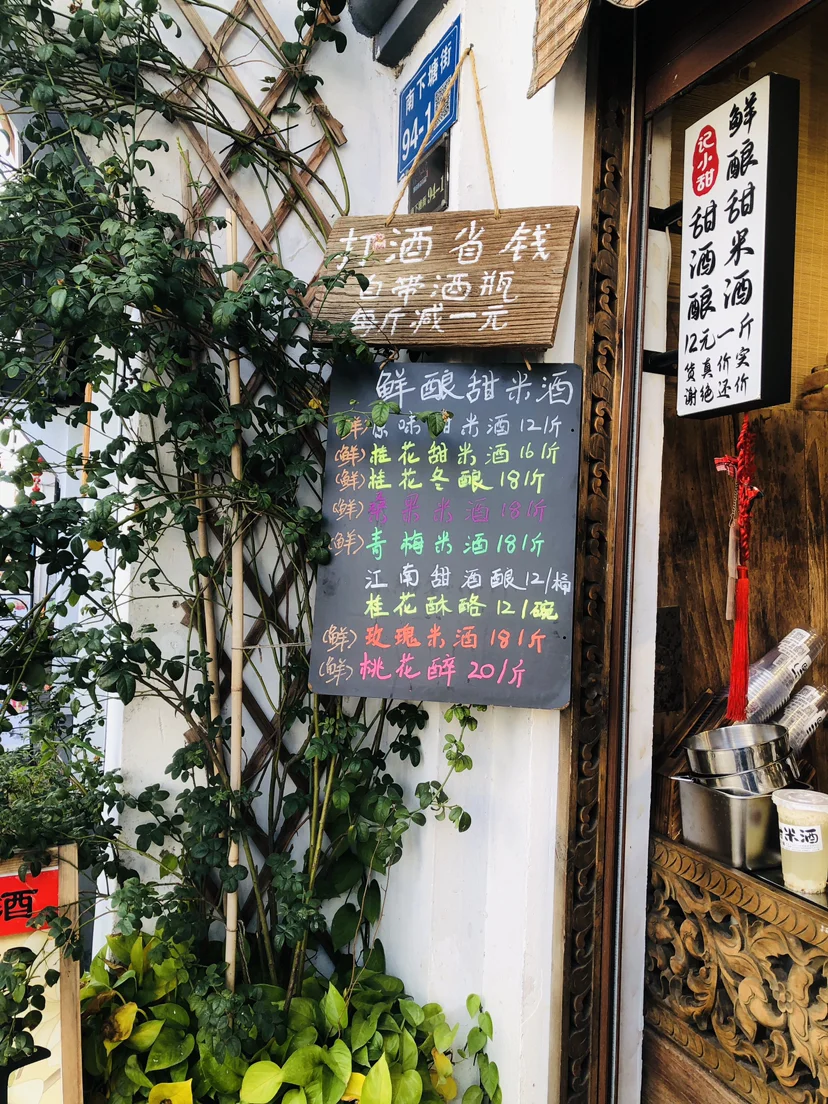 南下塘街
94-1
94-1
打酒省钱
自带酒瓶
每斤减一元
鲜酿甜米酒
(鲜)原味甜米酒12/斤
(鲜)桂花甜米酒16/斤
(鲜)桂花冬酿18/斤
(鲜)桑果米酒18/斤
(鲜)青梅米酒18/斤
江南甜酒酿12/桶
桂花酥酪12/碗
(鲜)玫瑰米酒18/斤
(鲜)桃花醉20/斤
鲜酿甜米酒
记小甜
甜酒酿
12元一斤
货真价实
谢绝还价
米酒
酒